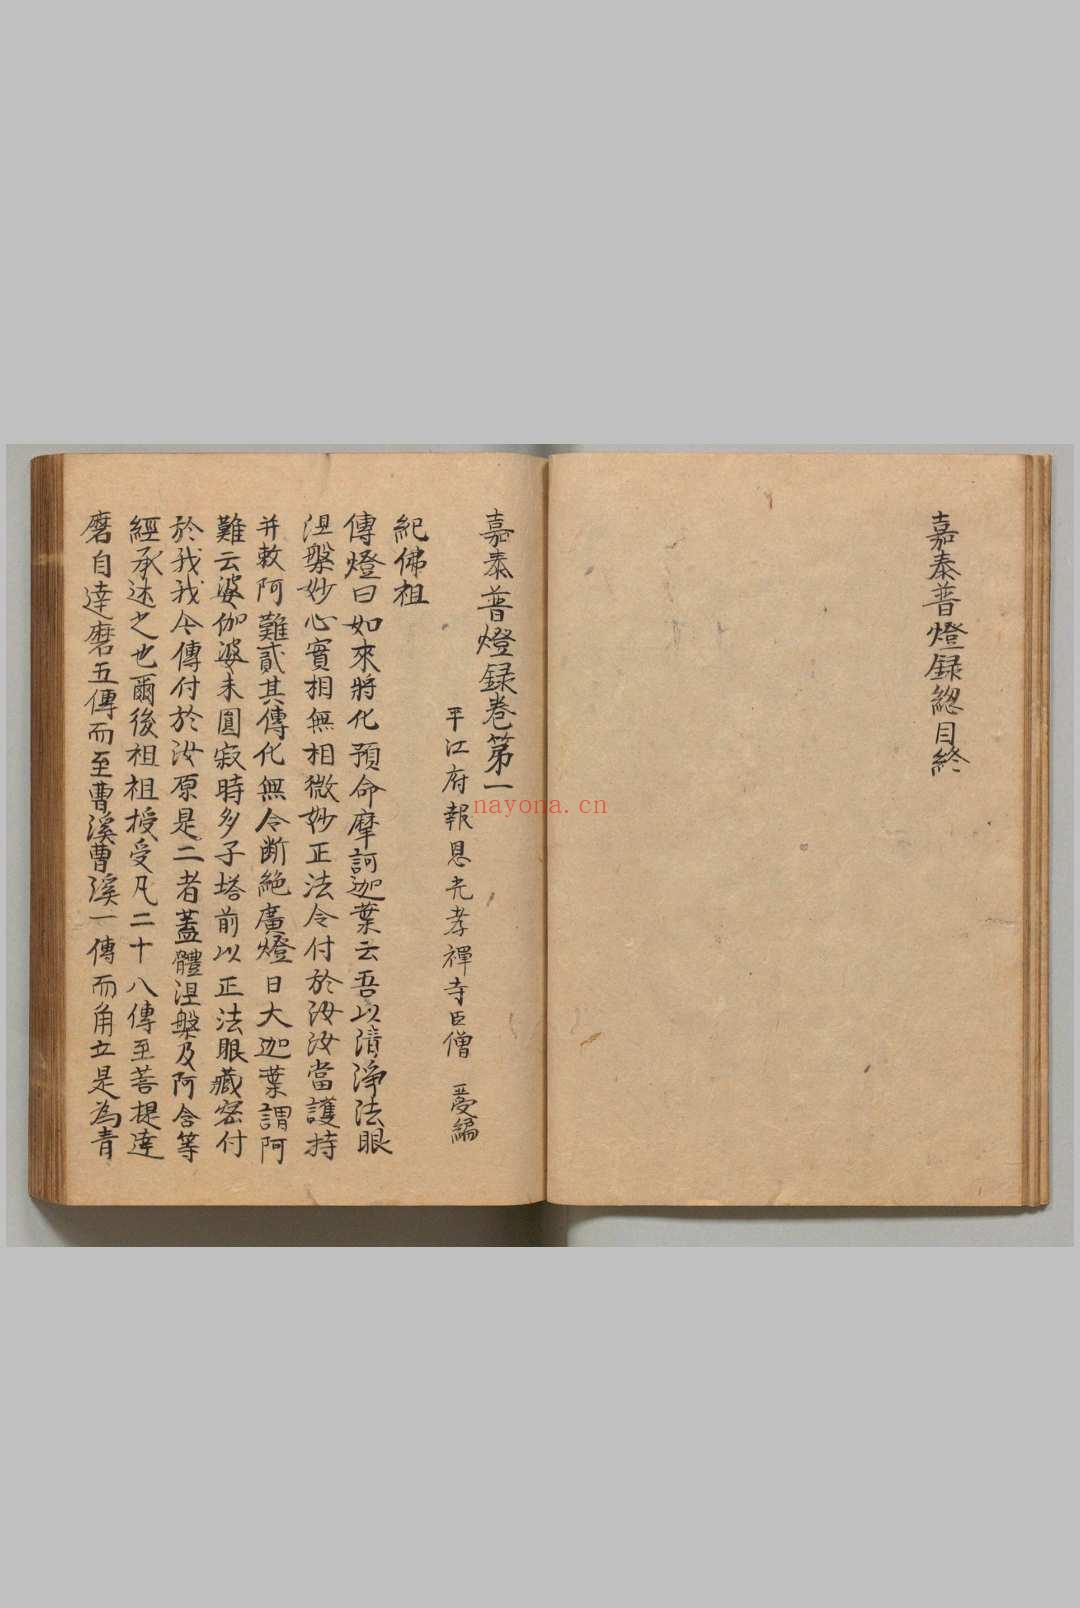 嘉泰普燈録總目終
嘉泰普燈録卷第一
平江府報恩光孝禪寺臣僧 受編
紀佛祖
傳燈曰如來將化預命摩訶迦葉云吾以清淨法眼
涅槃妙心實相無相微妙正法令付於汝汝當護持
并敕阿難貳其傳化無令斷絶廣燈曰大迦葉謂阿
難云婆伽婆未圓寂時多子塔前以正法眼藏密付
於我我今傳付於汝原是二者蓋體涅槃及阿含等
經承述之也爾後祖祖授受凡二十八傳至菩提達
磨自達磨五傳而至曹溪曹溪一傳而角立是為青
nayona.cn